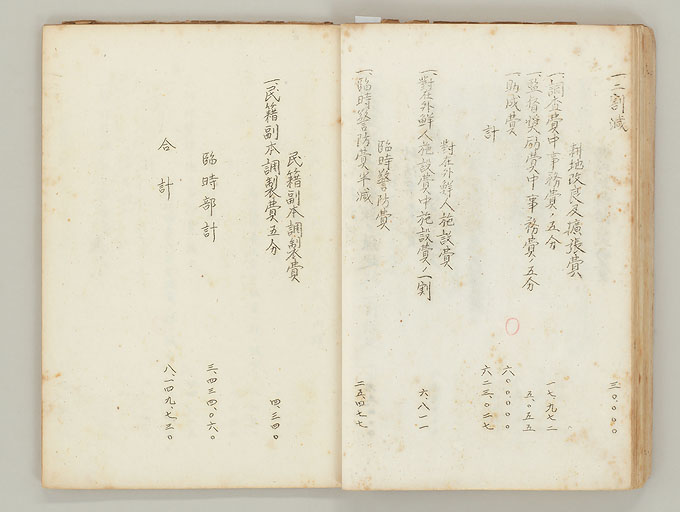 一、二割減 三〇、〇〇〇
耕地改良及擴張費
一、調査費中事務費ノ五分 一七、九七二
一、監督奨励費中事務費ノ五分 五、〇五五
一、助成費 六〇〇、〇〇〇
計 六二三、〇二七
對在外鮮人施設費
一、對在外鮮人施設費中施設費ノ一割 六、八一一
臨時警防費
一、臨時警防費半減 二五、四七七
民籍副本調製費
一、民籍副本調製費五分 四、三四〇
臨時部計 三、四三四、〇六〇
合計 八、一四九、七三〇